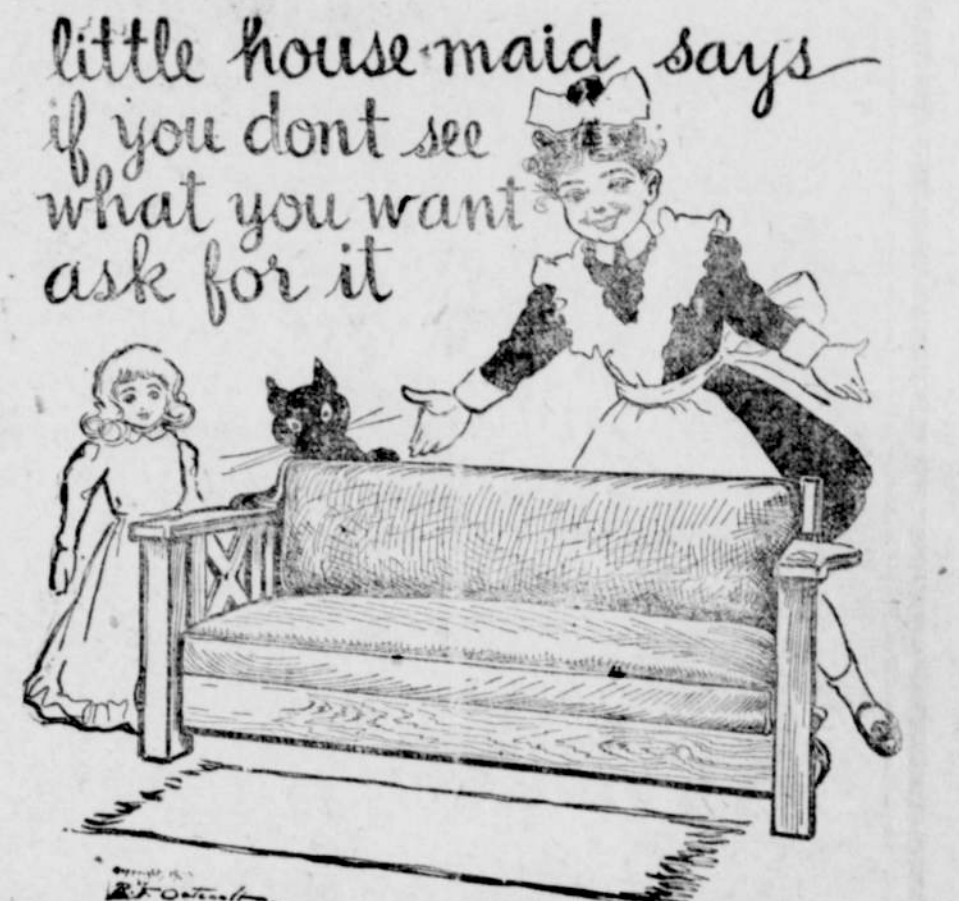 little house-maid says
if you dont see
what you want
ask for it